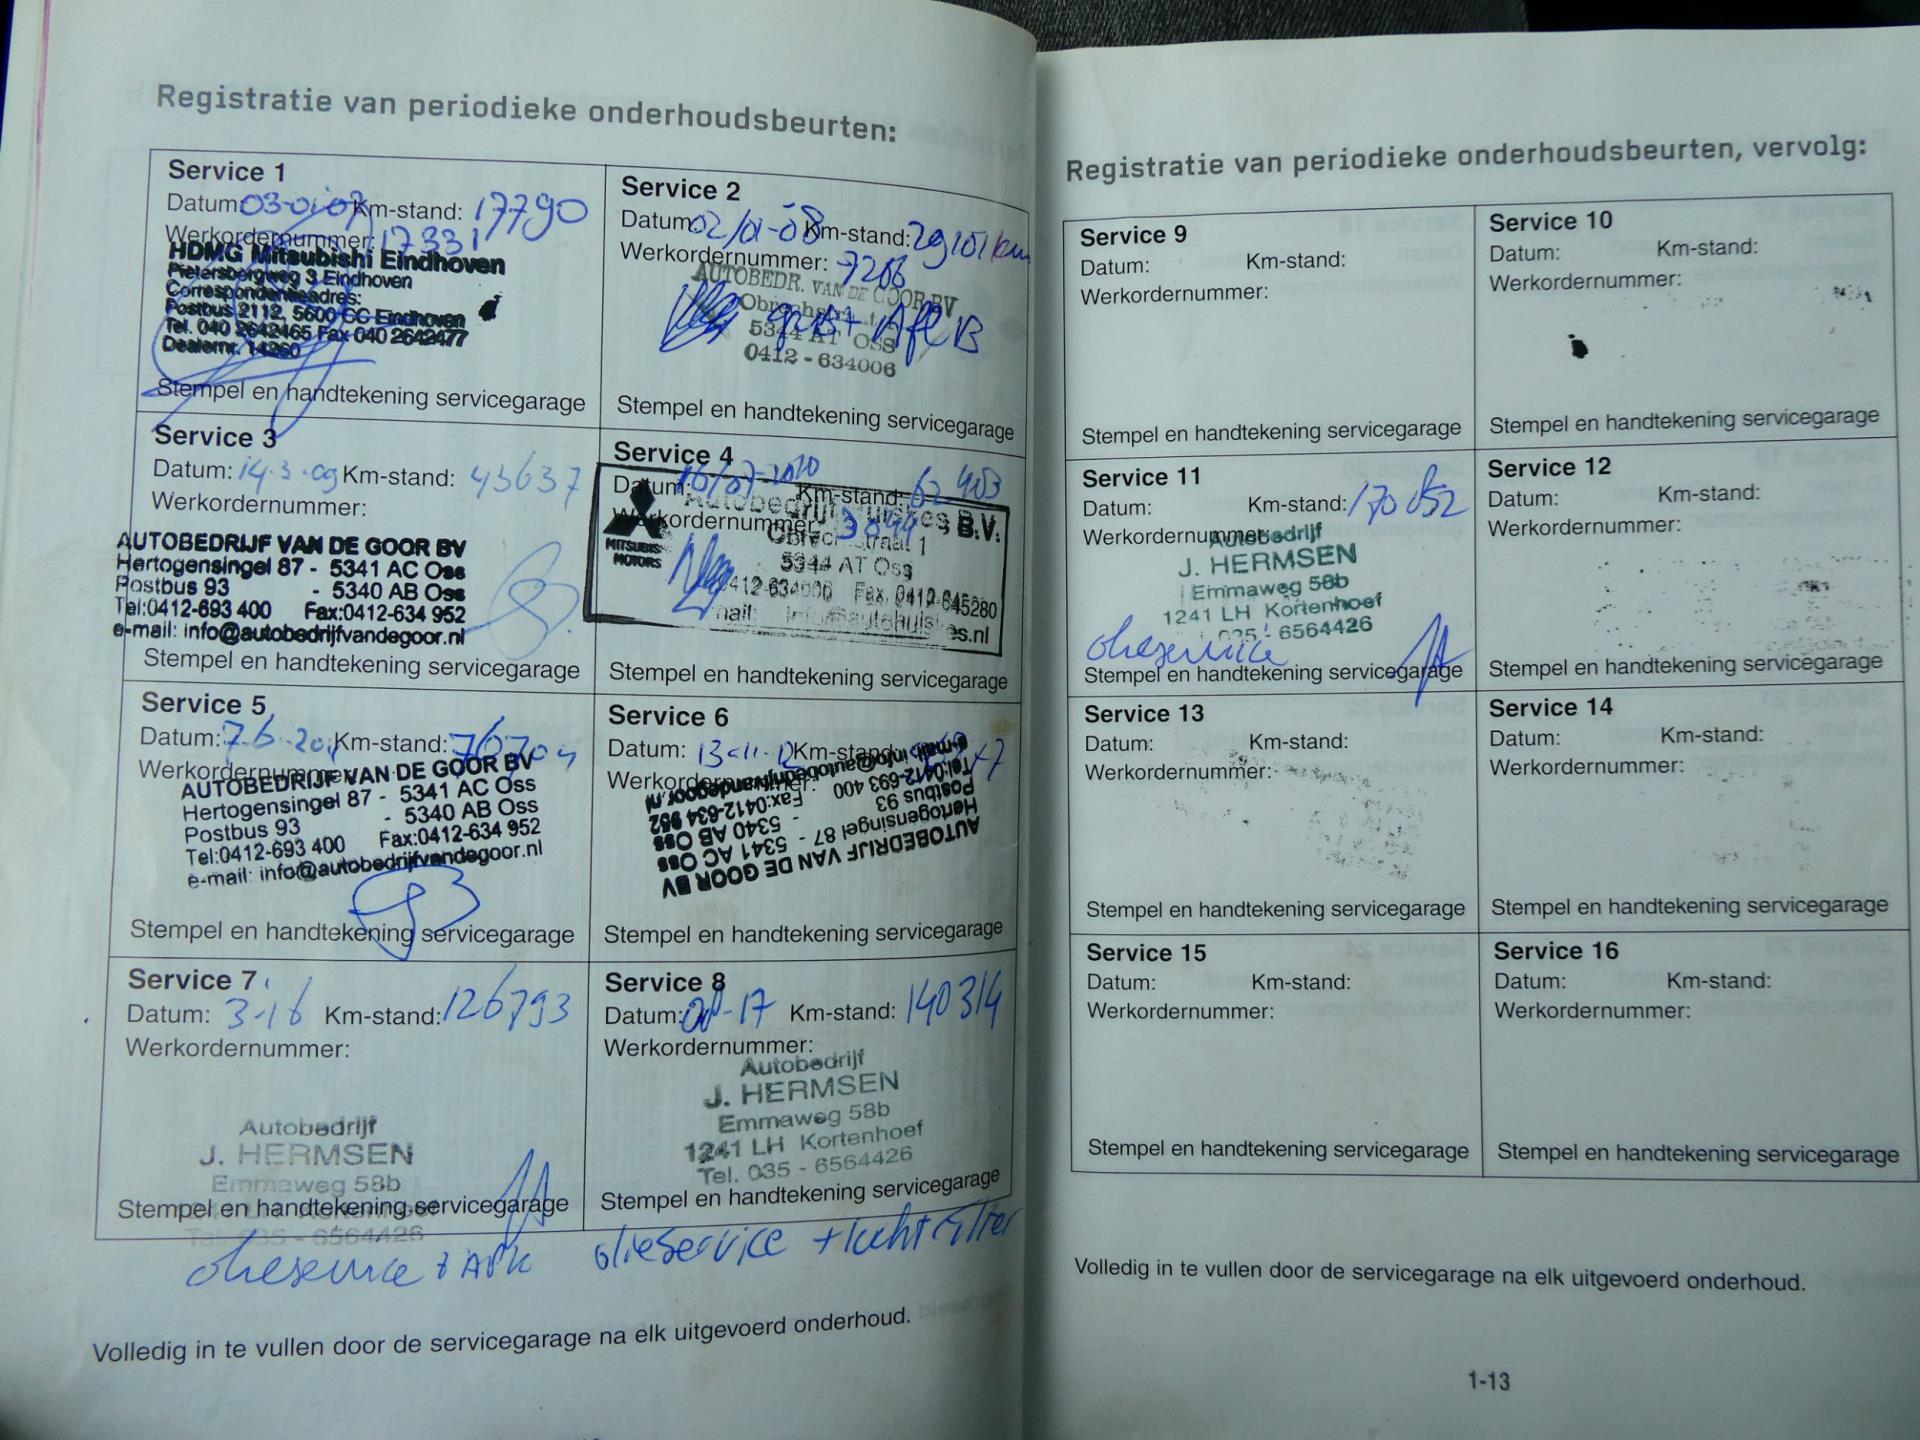 Registratie van periodieke onderhoudsbeurten:
Service 1
Datum: 03-01-07 Km-stand: 17790
Werkordernummer: 17331
HDMG Mitsubishi Eindhoven
Pietersbergweg 3 Eindhoven
Correspondentieadres:
Postbus 2112, 5600 CC Eindhoven
Tel. 040 2642465 Fax 040 2642477
Dealernr. 14260
Stempel en handtekening servicegarage
Service 2
Datum: 02/01-08 Km-stand: 29101 km
Werkordernummer: 7266
AUTOBEDR. VAN DE GOOR BV
5344 AT Oss
0412 - 634006
Stempel en handtekening servicegarage
Service 3
Datum: 14-3-09 Km-stand: 43637
Werkordernummer:
AUTOBEDRIJF VAN DE GOOR BV
Hertogensingel 87 - 5341 AC Oss
Postbus 93 - 5340 AB Oss
Tel:0412-693 400 Fax:0412-634 952
e-mail: info@autobedrijfvandegoor.nl
Stempel en handtekening servicegarage
Service 4
Datum: 16/07-2010 Km-stand: 62403
Werkordernummer:
Autobedrijf Hulskes B.V.
MITSUBISHI
MOTORS
5344 AT Oss
0412-634006 Fax. 0412-645280
Stempel en handtekening servicegarage
Service 5
Datum: 7-6-2011 Km-stand: 76704
Werkordernummer:
AUTOBEDRIJF VAN DE GOOR BV
Hertogensingel 87 - 5341 AC Oss
Postbus 93 - 5340 AB Oss
Tel:0412-693 400 Fax:0412-634 952
e-mail: info@autobedrijfvandegoor.nl
Stempel en handtekening servicegarage
Service 6
Datum: 13-11-12 Km-stand:
Werkordernummer:
AUTOBEDRIJF VAN DE GOOR BV
Hertogensingel 87 - 5341 AC Oss
Postbus 93 - 5340 AB Oss
Tel:0412-693 400 Fax:0412-634 952
e-mail: info@autobedrijfvandegoor.nl
Stempel en handtekening servicegarage
Service 7
Datum: 3-16 Km-stand: 126793
Werkordernummer:
Autobedrijf
J. HERMSEN
Emmaweg 58b
Stempel en handtekening servicegarage
Tel. 035 - 6564426
olieservice + APK
Service 8
Datum: -17 Km-stand: 140314
Werkordernummer:
Autobedrijf
J. HERMSEN
Emmaweg 58b
1241 LH Kortenhoef
Tel. 035 - 6564426
Stempel en handtekening servicegarage
olieservice + luchtfilter
Volledig in te vullen door de servicegarage na elk uitgevoerd onderhoud.
Registratie van periodieke onderhoudsbeurten, vervolg:
Service 9
Datum: Km-stand:
Werkordernummer:
Stempel en handtekening servicegarage
Service 10
Datum: Km-stand:
Werkordernummer:
Stempel en handtekening servicegarage
Service 11
Datum: Km-stand: 170052
Werkordernummer:
Autobedrijf
J. HERMSEN
Emmaweg 58b
1241 LH Kortenhoef
035 - 6564426
olieservice
Stempel en handtekening servicegarage
Service 12
Datum: Km-stand:
Werkordernummer:
Stempel en handtekening servicegarage
Service 13
Datum: Km-stand:
Werkordernummer:
Stempel en handtekening servicegarage
Service 14
Datum: Km-stand:
Werkordernummer:
Stempel en handtekening servicegarage
Service 15
Datum: Km-stand:
Werkordernummer:
Stempel en handtekening servicegarage
Service 16
Datum: Km-stand:
Werkordernummer:
Stempel en handtekening servicegarage
Volledig in te vullen door de servicegarage na elk uitgevoerd onderhoud.
1-13